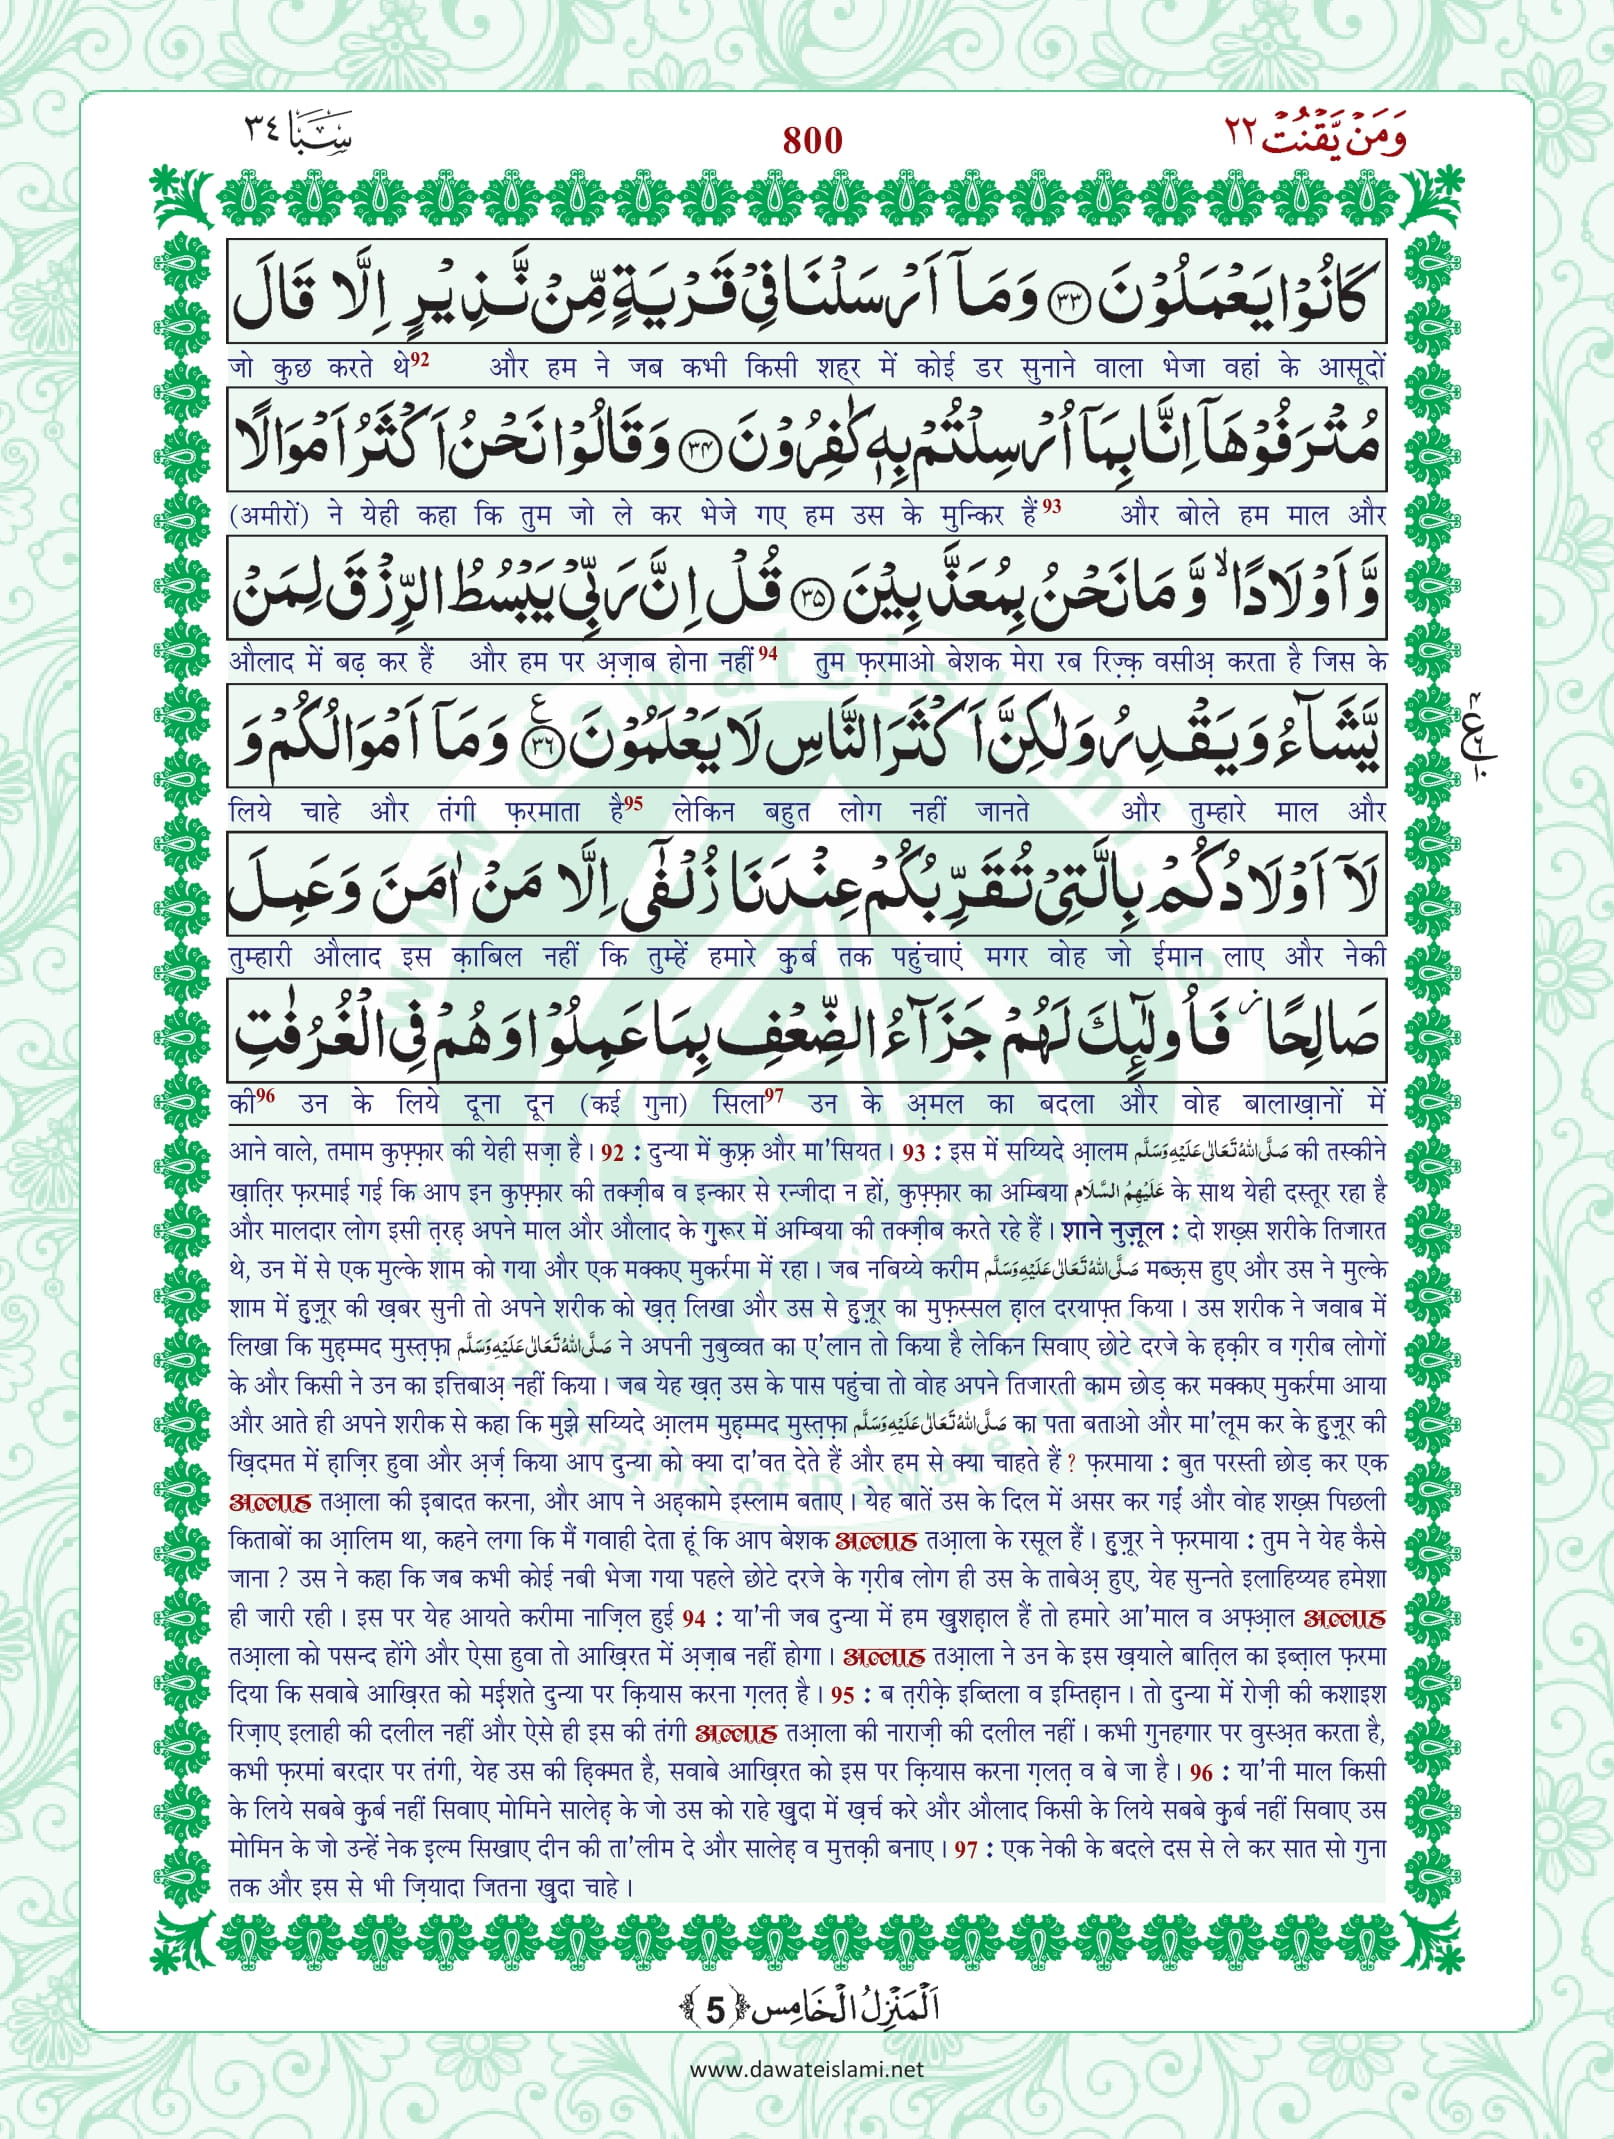 وَمَنۡ يَّقۡنُتۡ ٢٢
800
سَبَا ٣٤
كَانُوۡا يَعۡمَلُوۡنَ ﴿۳۳﴾ وَمَاۤ اَرۡسَلۡنَا فِىۡ قَرۡيَةٍ مِّنۡ نَّذِيۡرٍ اِلَّا قَالَ
जो कुछ करते थे92 और हम ने जब कभी किसी शह्र में कोई डर सुनाने वाला भेजा वहां के आसूदों
مُتۡرَفُوۡهَاۤ اِنَّا بِمَاۤ اُرۡسِلۡتُمۡ بِهٖ كٰفِرُوۡنَ ﴿۳۴﴾ وَقَالُوۡا نَحۡنُ اَكۡثَرُ اَمۡوَالًا
(अमीरों) ने येही कहा कि तुम जो ले कर भेजे गए हम उस के मुन्किर हैं93 और बोले हम माल और
وَّاَوۡلَادًا ۙ وَّمَا نَحۡنُ بِمُعَذَّبِيۡنَ ﴿۳۵﴾ قُلۡ اِنَّ رَبِّىۡ يَبۡسُطُ الرِّزۡقَ لِمَنۡ
औलाद में बढ़ कर हैं और हम पर अ़ज़ाब होना नहीं94 तुम फ़रमाओ बेशक मेरा रब रिज़्क़ वसीअ़ करता है जिस के
يَّشَآءُ وَيَقۡدِرُ وَلٰكِنَّ اَكۡثَرَ النَّاسِ لَا يَعۡلَمُوۡنَ ﴿۳۶﴾ ع وَمَاۤ اَمۡوَالُكُمۡ وَ
लिये चाहे और तंगी फ़रमाता है95 लेकिन बहुत लोग नहीं जानते और तुम्हारे माल और
لَاۤ اَوۡلَادُكُمۡ بِالَّتِىۡ تُقَرِّبُكُمۡ عِنۡدَنَا زُلۡفٰٓى اِلَّا مَنۡ اٰمَنَ وَعَمِلَ
तुम्हारी औलाद इस क़ाबिल नहीं कि तुम्हें हमारे क़ुर्ब तक पहुंचाएं मगर वोह जो ईमान लाए और नेकी
صَالِحًا ۫ فَاُولٰٓٮِٕكَ لَهُمۡ جَزَآءُ الضِّعۡفِ بِمَا عَمِلُوۡا وَهُمۡ فِى الۡغُرُفٰتِ
की96 उन के लिये दूना दून (कई गुना) सिला97 उन के अ़मल का बदला और वोह बालाख़ानों में
आने वाले, तमाम कुफ़्फ़ार की येही सज़ा है। 92 : दुन्या में कुफ़्र और मा'सियत। 93 : इस में सय्यिदे आ़लम صَلَّى اللهُ تَعَالٰى عَلَيْهِ وَسَلَّم की तस्कीने
ख़ात़िर फ़रमाई गई कि आप इन कुफ़्फ़ार की तक्ज़ीब व इन्कार से रन्जीदा न हों, कुफ़्फ़ार का अम्बिया عَلَيْهِمُ السَّلَام के साथ येही दस्तूर रहा है
और मालदार लोग इसी त़रह़ अपने माल और औलाद के ग़ुरूर में अम्बिया की तक्ज़ीब करते रहे हैं। शाने नुज़ूल : दो शख़्स शरीके तिजारत
थे, उन में से एक मुल्के शाम को गया और एक मक्कए मुकर्रमा में रहा। जब नबिय्ये करीम صَلَّى اللهُ تَعَالٰى عَلَيْهِ وَسَلَّم मब्ऊ़स हुए और उस ने मुल्के
शाम में हुज़ूर की ख़बर सुनी तो अपने शरीक को ख़त़ लिखा और उस से हुज़ूर का मुफ़स्सल ह़ाल दरयाफ़्त किया। उस शरीक ने जवाब में
लिखा कि मुह़म्मद मुस्त़फ़ा صَلَّى اللهُ تَعَالٰى عَلَيْهِ وَسَلَّم ने अपनी नुबुव्वत का ए'लान तो किया है लेकिन सिवाए छोटे दरजे के ह़क़ीर व ग़रीब लोगों
के और किसी ने उन का इत्तिबाअ़ नहीं किया। जब येह ख़त़ उस के पास पहुंचा तो वोह अपने तिजारती काम छोड़ कर मक्कए मुकर्रमा आया
और आते ही अपने शरीक से कहा कि मुझे सय्यिदे आ़लम मुह़म्मद मुस्त़फ़ा صَلَّى اللهُ تَعَالٰى عَلَيْهِ وَسَلَّم का पता बताओ और मा'लूम कर के हुज़ूर की
ख़िदमत में ह़ाज़िर हुवा और अ़र्ज़ किया आप दुन्या को क्या दा'वत देते हैं और हम से क्या चाहते हैं ? फ़रमाया : बुत परस्ती छोड़ कर एक
अल्लाह तआ़ला की इ़बादत करना, और आप ने अह़कामे इस्लाम बताए। येह बातें उस के दिल में असर कर गईं और वोह शख़्स पिछली
किताबों का आ़लिम था, कहने लगा कि मैं गवाही देता हूं कि आप बेशक अल्लाह तआ़ला के रसूल हैं। हुज़ूर ने फ़रमाया : तुम ने येह कैसे
जाना ? उस ने कहा कि जब कभी कोई नबी भेजा गया पहले छोटे दरजे के ग़रीब लोग ही उस के ताबेअ़ हुए, येह सुन्नते इलाहिय्यह हमेशा
ही जारी रही। इस पर येह आयते करीमा नाज़िल हुई 94 : या'नी जब दुन्या में हम ख़ुशह़ाल हैं तो हमारे आ'माल व अफ़्आ़ल अल्लाह
तआ़ला को पसन्द होंगे और ऐसा हुवा तो आख़िरत में अ़ज़ाब नहीं होगा। अल्लाह तआ़ला ने उन के इस ख़याले बात़िल का इब्त़ाल फ़रमा
दिया कि सवाबे आख़िरत को मईशते दुन्या पर क़ियास करना ग़लत़ है। 95 : ब त़रीक़े इब्तिला व इम्तिह़ान। तो दुन्या में रोज़ी की कशाइश
रिज़ाए इलाही की दलील नहीं और ऐसे ही इस की तंगी अल्लाह तआ़ला की नाराज़ी की दलील नहीं। कभी गुनहगार पर वुस्अ़त करता है,
कभी फ़रमां बरदार पर तंगी, येह उस की ह़िक्मत है, सवाबे आख़िरत को इस पर क़ियास करना ग़लत़ व बे जा है। 96 : या'नी माल किसी
के लिये सबबे क़ुर्ब नहीं सिवाए मोमिने सालेह़ के जो उस को राहे ख़ुदा में ख़र्च करे और औलाद किसी के लिये सबबे क़ुर्ब नहीं सिवाए उस
मोमिन के जो उन्हें नेक इ़ल्म सिखाए दीन की ता'लीम दे और सालेह़ व मुत्तक़ी बनाए। 97 : एक नेकी के बदले दस से ले कर सात सो गुना
तक और इस से भी ज़ियादा जितना ख़ुदा चाहे।
اَلۡمَنۡزِلُ الۡخَامِس ﴿5﴾
www.dawateislami.net